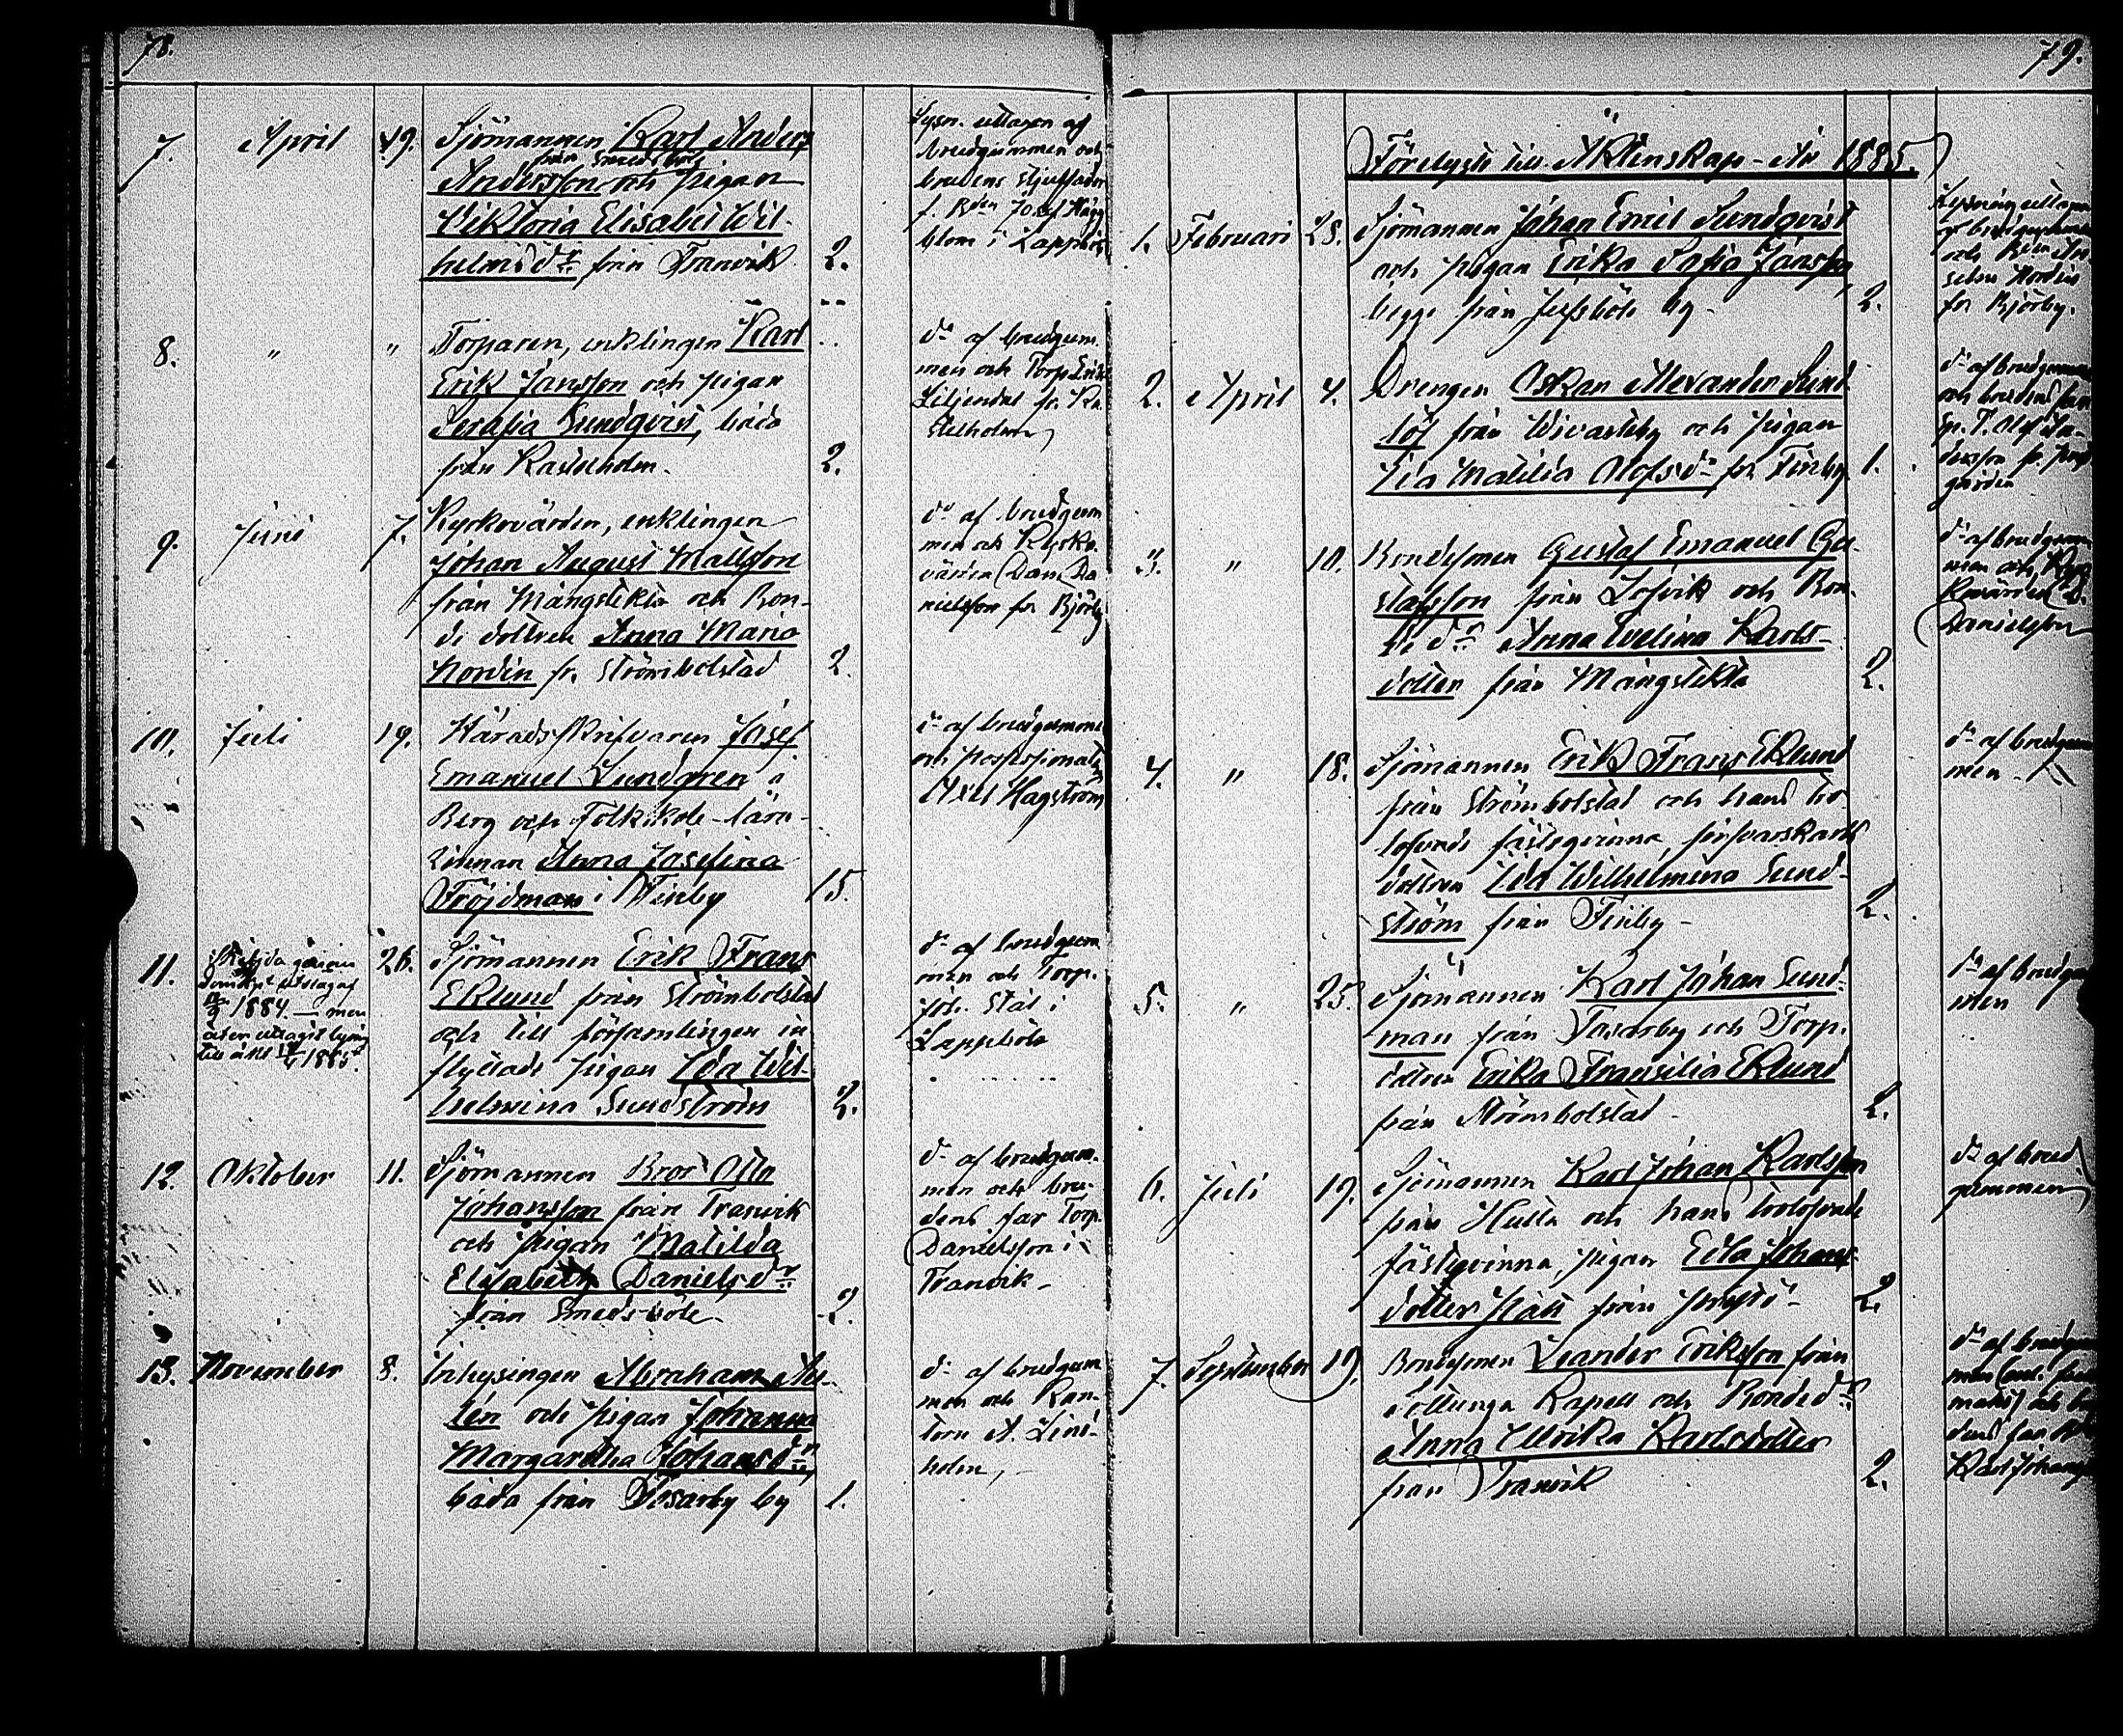 78.
7. April 19. Sjömannen Karl Anders
från Smedsböle
Andersson och pigan
Viktoria Elisabet Wil-
helmsdr från Tranvik 2.
Lysn. uttagen af
brudgummen och
brudens stjuffader
f. Bden Josef Hägg
blom i Lappböle
8. " " Torparen, enklingen Karl
Erik Jansson och pigan
Serafia Sundqvist, båda
från Kastelholm. 2.
do af brudgum
men och Torp. Erik
Liljendal fr. Ka
stelholm
9. Juni 7. Kyrkovärden, enklingen
Johan August Mattsson
från Mångstekta och Bon-
de dottren Anna Maria
Nordin fr. Strömbolstad 2.
do af brudgum
men och Kyrko
värden Dan. Da
nielsson fr. Björby
10. Juli 19. Häradsskrifvaren Josef
Emanuel Lundgren å
Berg och Folkskole-lära-
rinnan Anna Josefina
Fröjdman i Finby 15.
do af brudgummen
och possessionaten
Axel Hagström
11. 26. Sjömannen Erik Frans
Eklund från Strömbolstad
och till församlingen in
flyttade pigan Ida Wil-
helmina Sundström 2.
Skiljda genom
Domkpls utslag af
1884. — men
åter uttagit lysning
till äkt 18/4 1885.
do af brudgum
men och Torp.
Joh. Stål i
Lappböle
12. Oktober 11. Sjömannen Bror Otto
Johansson från Tranvik
och pigan Matilda
Elisabeth Danielsdr
från Smedsböle 2.
do af brudgum-
men och bru-
dens far Torp.
Danielsson i
Tranvik
13. November 8. Inhysingen Abraham Au-
lén och pigan Johanna
Margaretha Johansdr
båda från Tosarby by 1.
do af brudgum
men och Kan-
torn A. Lind-
holm
79.
Förelyste till Äktenskap - År 1885.
1. Februari 28. Sjömannen Johan Emil Sundqvist
och pigan Erika Sofia Jansson
begge från Jussböle by 2.
Lysning uttagen
af brudgummen
och Bden
Nordin
fr Björby.
2. April 4. Drengen Oskar Alexander Sund
löf från Wivastby och pigan
Ida Matilda Olofsdr fr Finby 1.
do af brudgummen
och brudens
Olof An-
dersson fr. Prest
gården
3. " 10. Bondesonen Gustaf Emanuel Gu-
stafsson från Lofvik och Bon-
de dr Anna Evelina Karls-
dotter från Mångstekta 2.
do af brudgum
men och Kyrk
kovärden D.
Danielsson
4. " 18. Sjömannen Erik Frans Eklund
från Strömbolstad och hans tro-
lofvade fästeqvinna, försvarskarls
dottren Ida Wilhelmina Sund-
ström från Finby 2.
do af brudgum
men
5. " 25. Sjömannen Karl Johan Sund-
man från Tosarby och Torp.
dottren Erika Fransilia Eklund
från Strömbolstad 2.
do af brudgu
men
6. Juli 19. Sjömannen Karl Johan Karlsson
från Hulta och hans trolofvade
fästeqvinna, pigan Edla Johans-
dotter från 2.
do af brud
gummen
7. September 19. Bondesonen Leander Eriksson från
Sottunga Kapell och Bonded:r
Anna Ulrika Karlsdotter
från Tranvik 2.
do af brudgum
men
och bru
dens far
Karl Johans